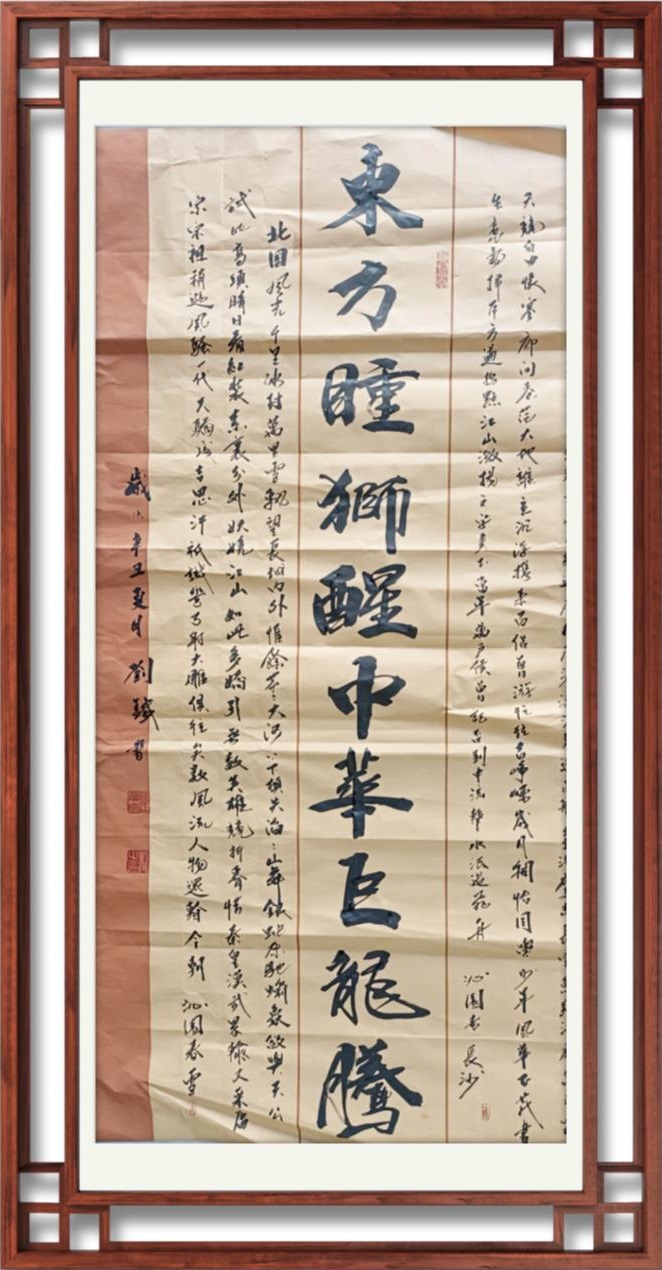 天競自由悵寥廓問蒼茫大地誰主沉浮携來百侣曾游憶往昔崢嶸歲月稠恰同學少年風華正茂書
生意氣揮斥方遒指點江山激揚文字糞土當年萬戶侯曾記否到中流擊水浪遏飛舟 沁園春 長沙
東方睡獅醒中華巨龍騰
北国風光千里冰封萬里雪飄望長城内外惟餘莽〻大河上下頓失滔〻山舞銀蛇原馳蠟象欲與天公
試比高須晴日看紅裝素裹分外妖嬈江山如此多嬌引無數英雄競折腰惜秦皇漢武略輸文采唐
宗宋祖稍遜風騷一代天驕成吉思汗祇識彎弓射大雕俱往矣數風流人物還看今朝 沁園春 雪
歲次辛丑夏月 劉鐵書